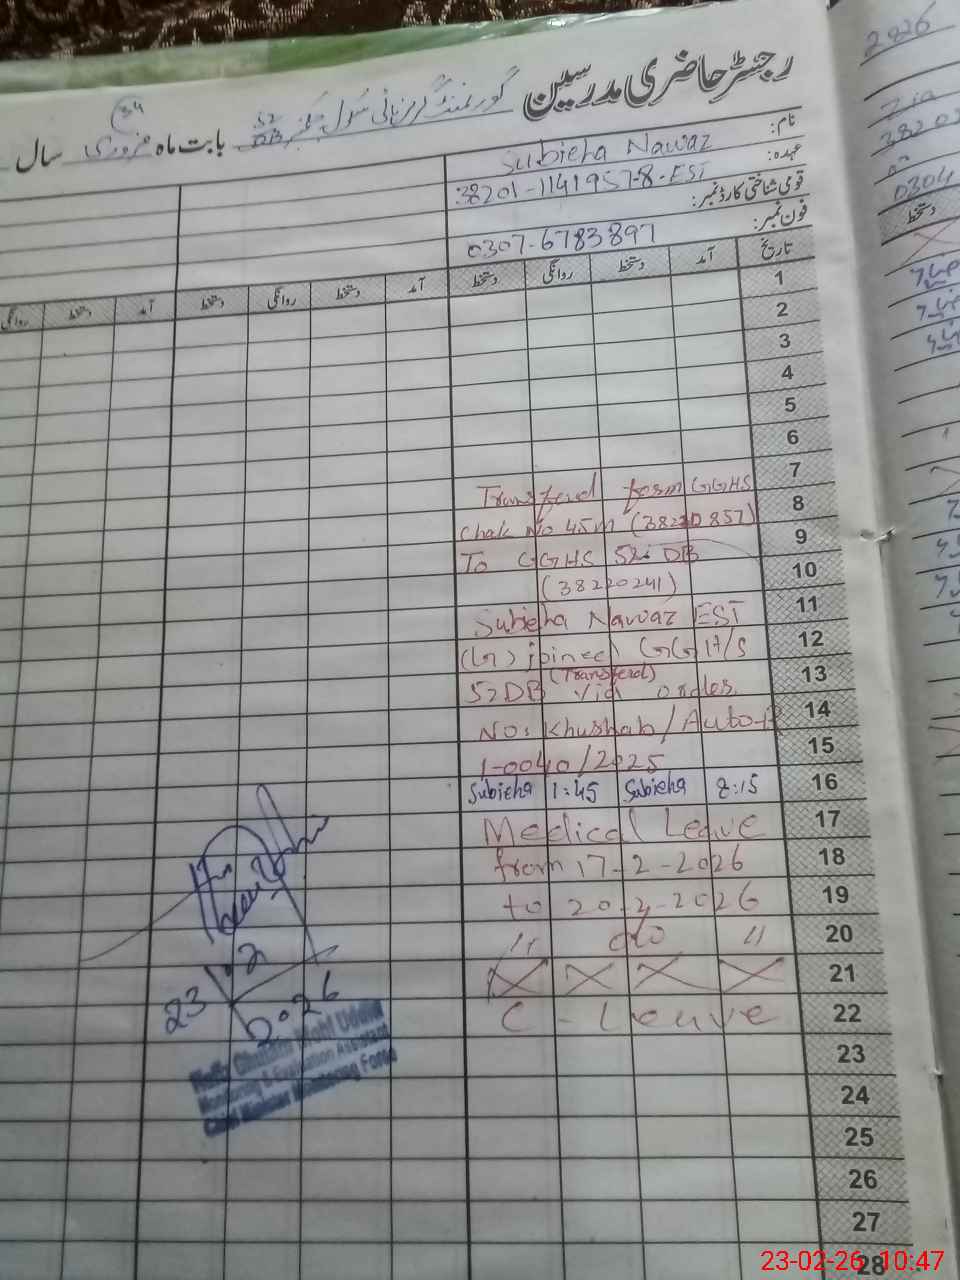 رجسٹر حاضری مدرسین گورنمنٹ گرلز ہائی سکول چک نمبر 52 DB بابت ماہ فروری سال
34
نام: Subieha Nawaz
عہدہ:
قومی شناختی کارڈ نمبر: 38201-1141957-8-EST
فون نمبر: 0307-6783897
تاریخ آمد دستخط روانگی دستخط آمد دستخط روانگی دستخط آمد دستخط روانگی
1
2
3
4
5
6
7
Transferd form GGHS 8
Chak No 45m (38220857) 9
To GGHS 52 DB 10
(38220241)
Subieha Nawaz EST 11
(G) joined GGH/S 12
(Transferd)
52DB via orders. 13
No: Khushab/Auto- 14
1-0040/2025 15
Subieha 1:45 Subieha 8:15 16
Medical Leave 17
from 17-2-2026 18
to 20-2-2026 19
" do " 20
21
C-Leave 22
23
24
25
26
27
28
23-02-2026
Monitoring & Evaluation Assistant
Chief Minister Monitoring Force
2026
0304
دستخط
23-02-26 10:47